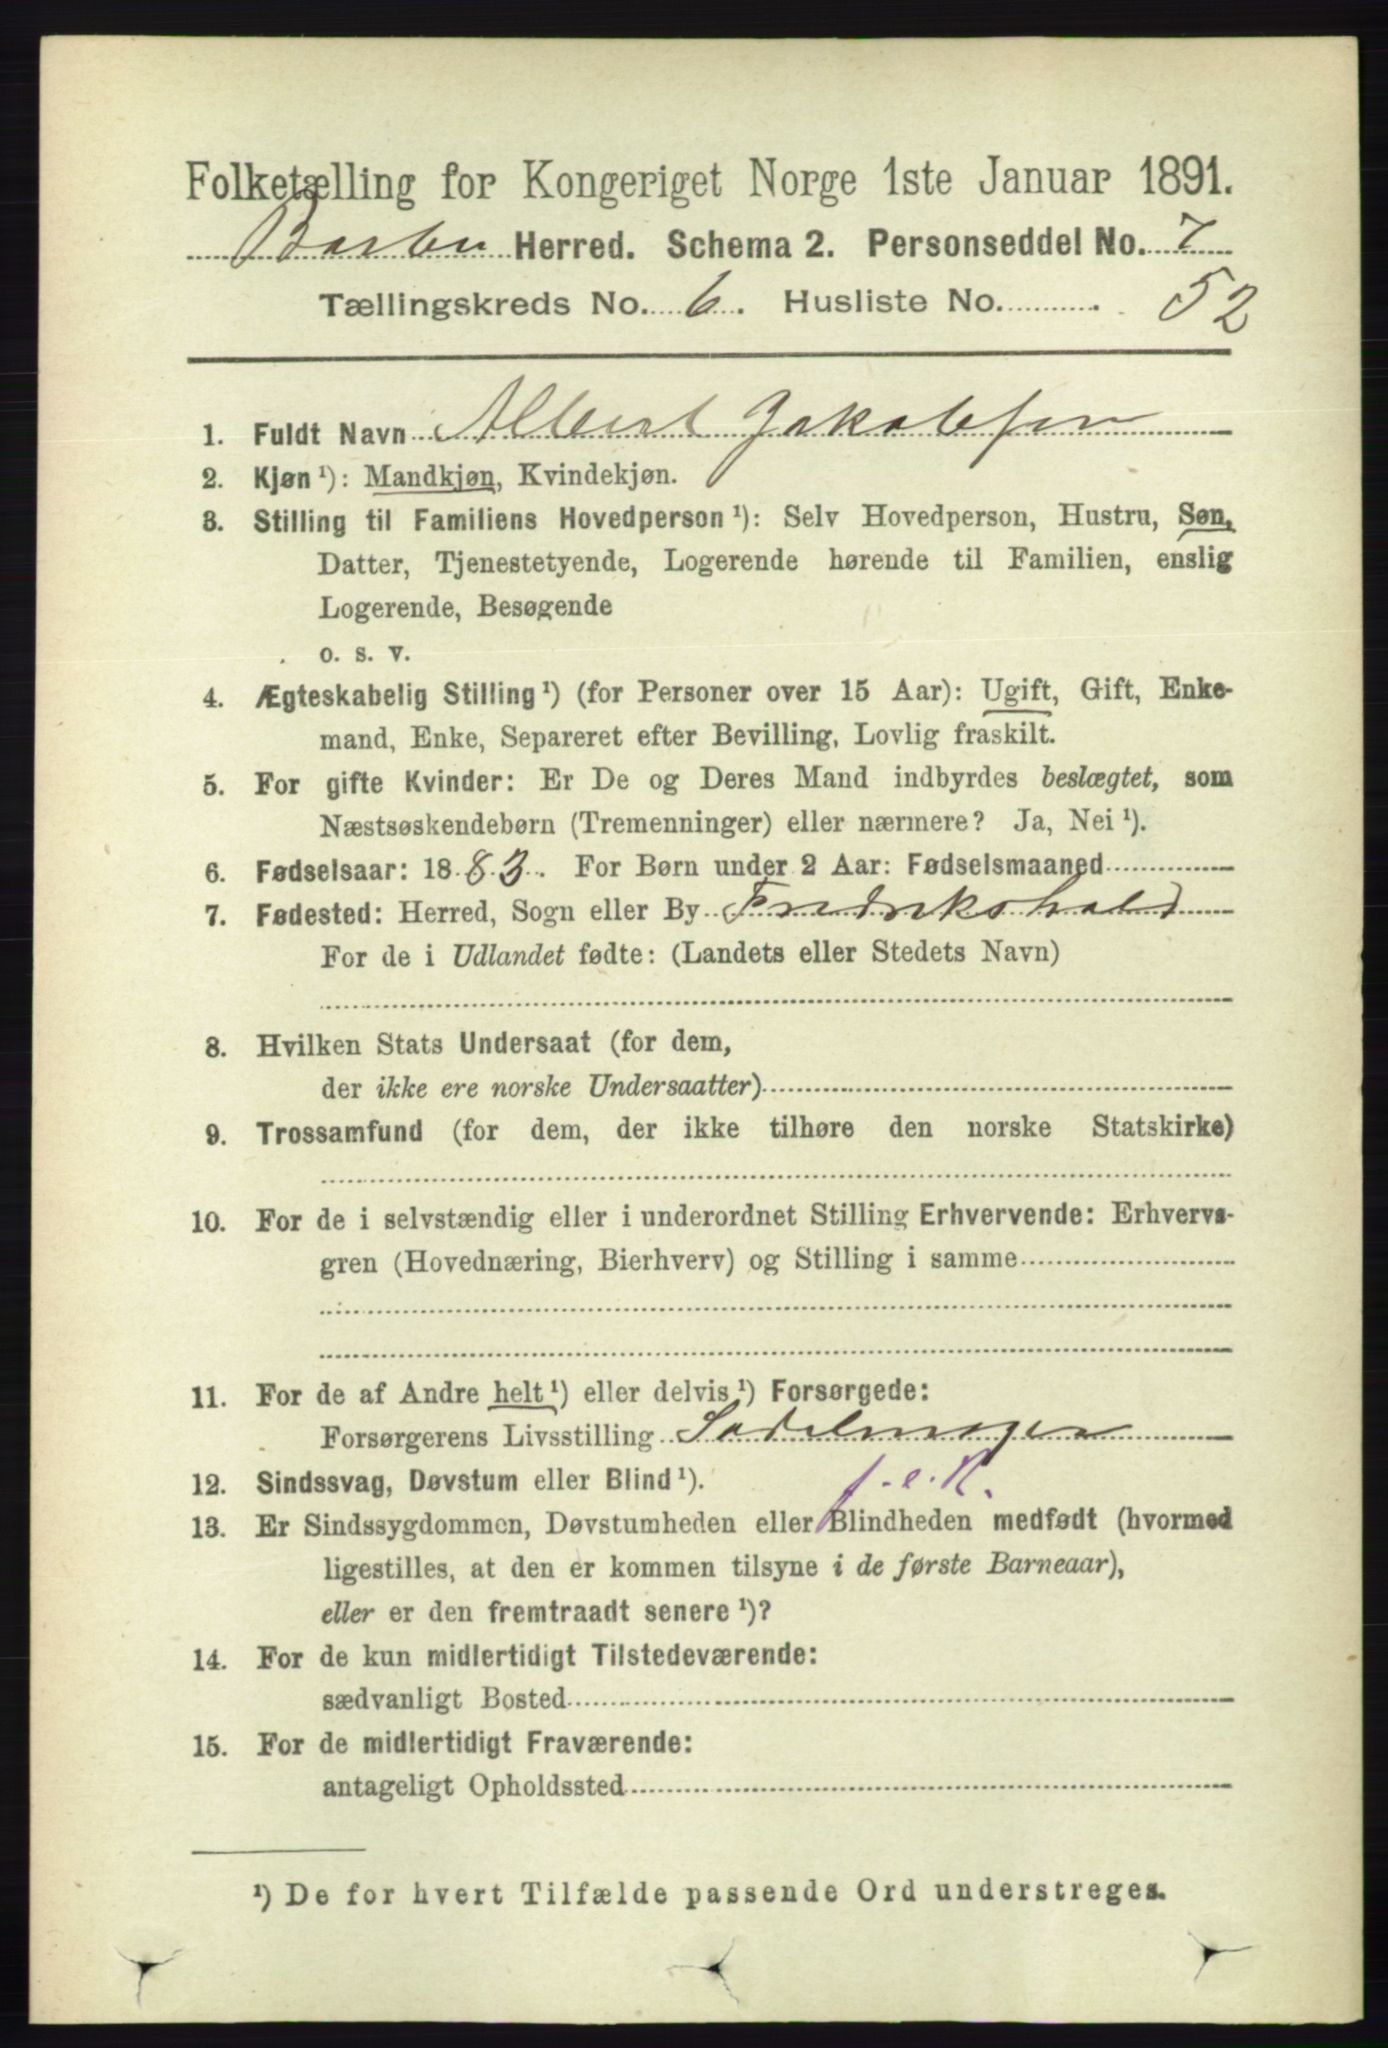 Folketælling for Kongeriget Norge 1ste Januar 1891.
Barbu Herred. Schema 2. Personseddel No. 7
Tællingskreds No. 6. Husliste No. 52
1. Fuldt Navn Albert Jakobsen
2. Kjøn ¹): Mandkjøn, Kvindekjøn.
3. Stilling til Familiens Hovedperson ¹): Selv Hovedperson, Hustru, Søn,
Datter, Tjenestetyende, Logerende hørende til Familien, enslig
Logerende, Besøgende
o. s. v.
4. Ægteskabelig Stilling ¹) (for Personer over 15 Aar): Ugift, Gift, Enke-
mand, Enke, Separeret efter Bevilling, Lovlig fraskilt.
5. For gifte Kvinder: Er De og Deres Mand indbyrdes beslægtet, som
Næstsøskendebørn (Tremenninger) eller nærmere? Ja, Nei ¹).
6. Fødselsaar: 1883. For Børn under 2 Aar: Fødselsmaaned
7. Fødested: Herred, Sogn eller By Fredrikshald
For de i Udlandet fødte: (Landets eller Stedets Navn)
8. Hvilken Stats Undersaat (for dem,
der ikke ere norske Undersaatter)
9. Trossamfund (for dem, der ikke tilhøre den norske Statskirke)
10. For de i selvstændig eller i underordnet Stilling Erhvervende: Erhvervs-
gren (Hovednæring, Bierhverv) og Stilling i samme
11. For de af Andre helt ¹) eller delvis ¹) Forsørgede:
Forsørgerens Livsstilling Sadelmager
f.e.R.
12. Sindssvag, Døvstum eller Blind ¹).
13. Er Sindssygdommen, Døvstumheden eller Blindheden medfødt (hvormed
ligestilles, at den er kommen tilsyne i de første Barneaar),
eller er den fremtraadt senere ¹)?
14. For de kun midlertidigt Tilstedeværende:
sædvanligt Bosted
15. For de midlertidigt Fraværende:
antageligt Opholdssted
¹) De for hvert Tilfælde passende Ord understreges.